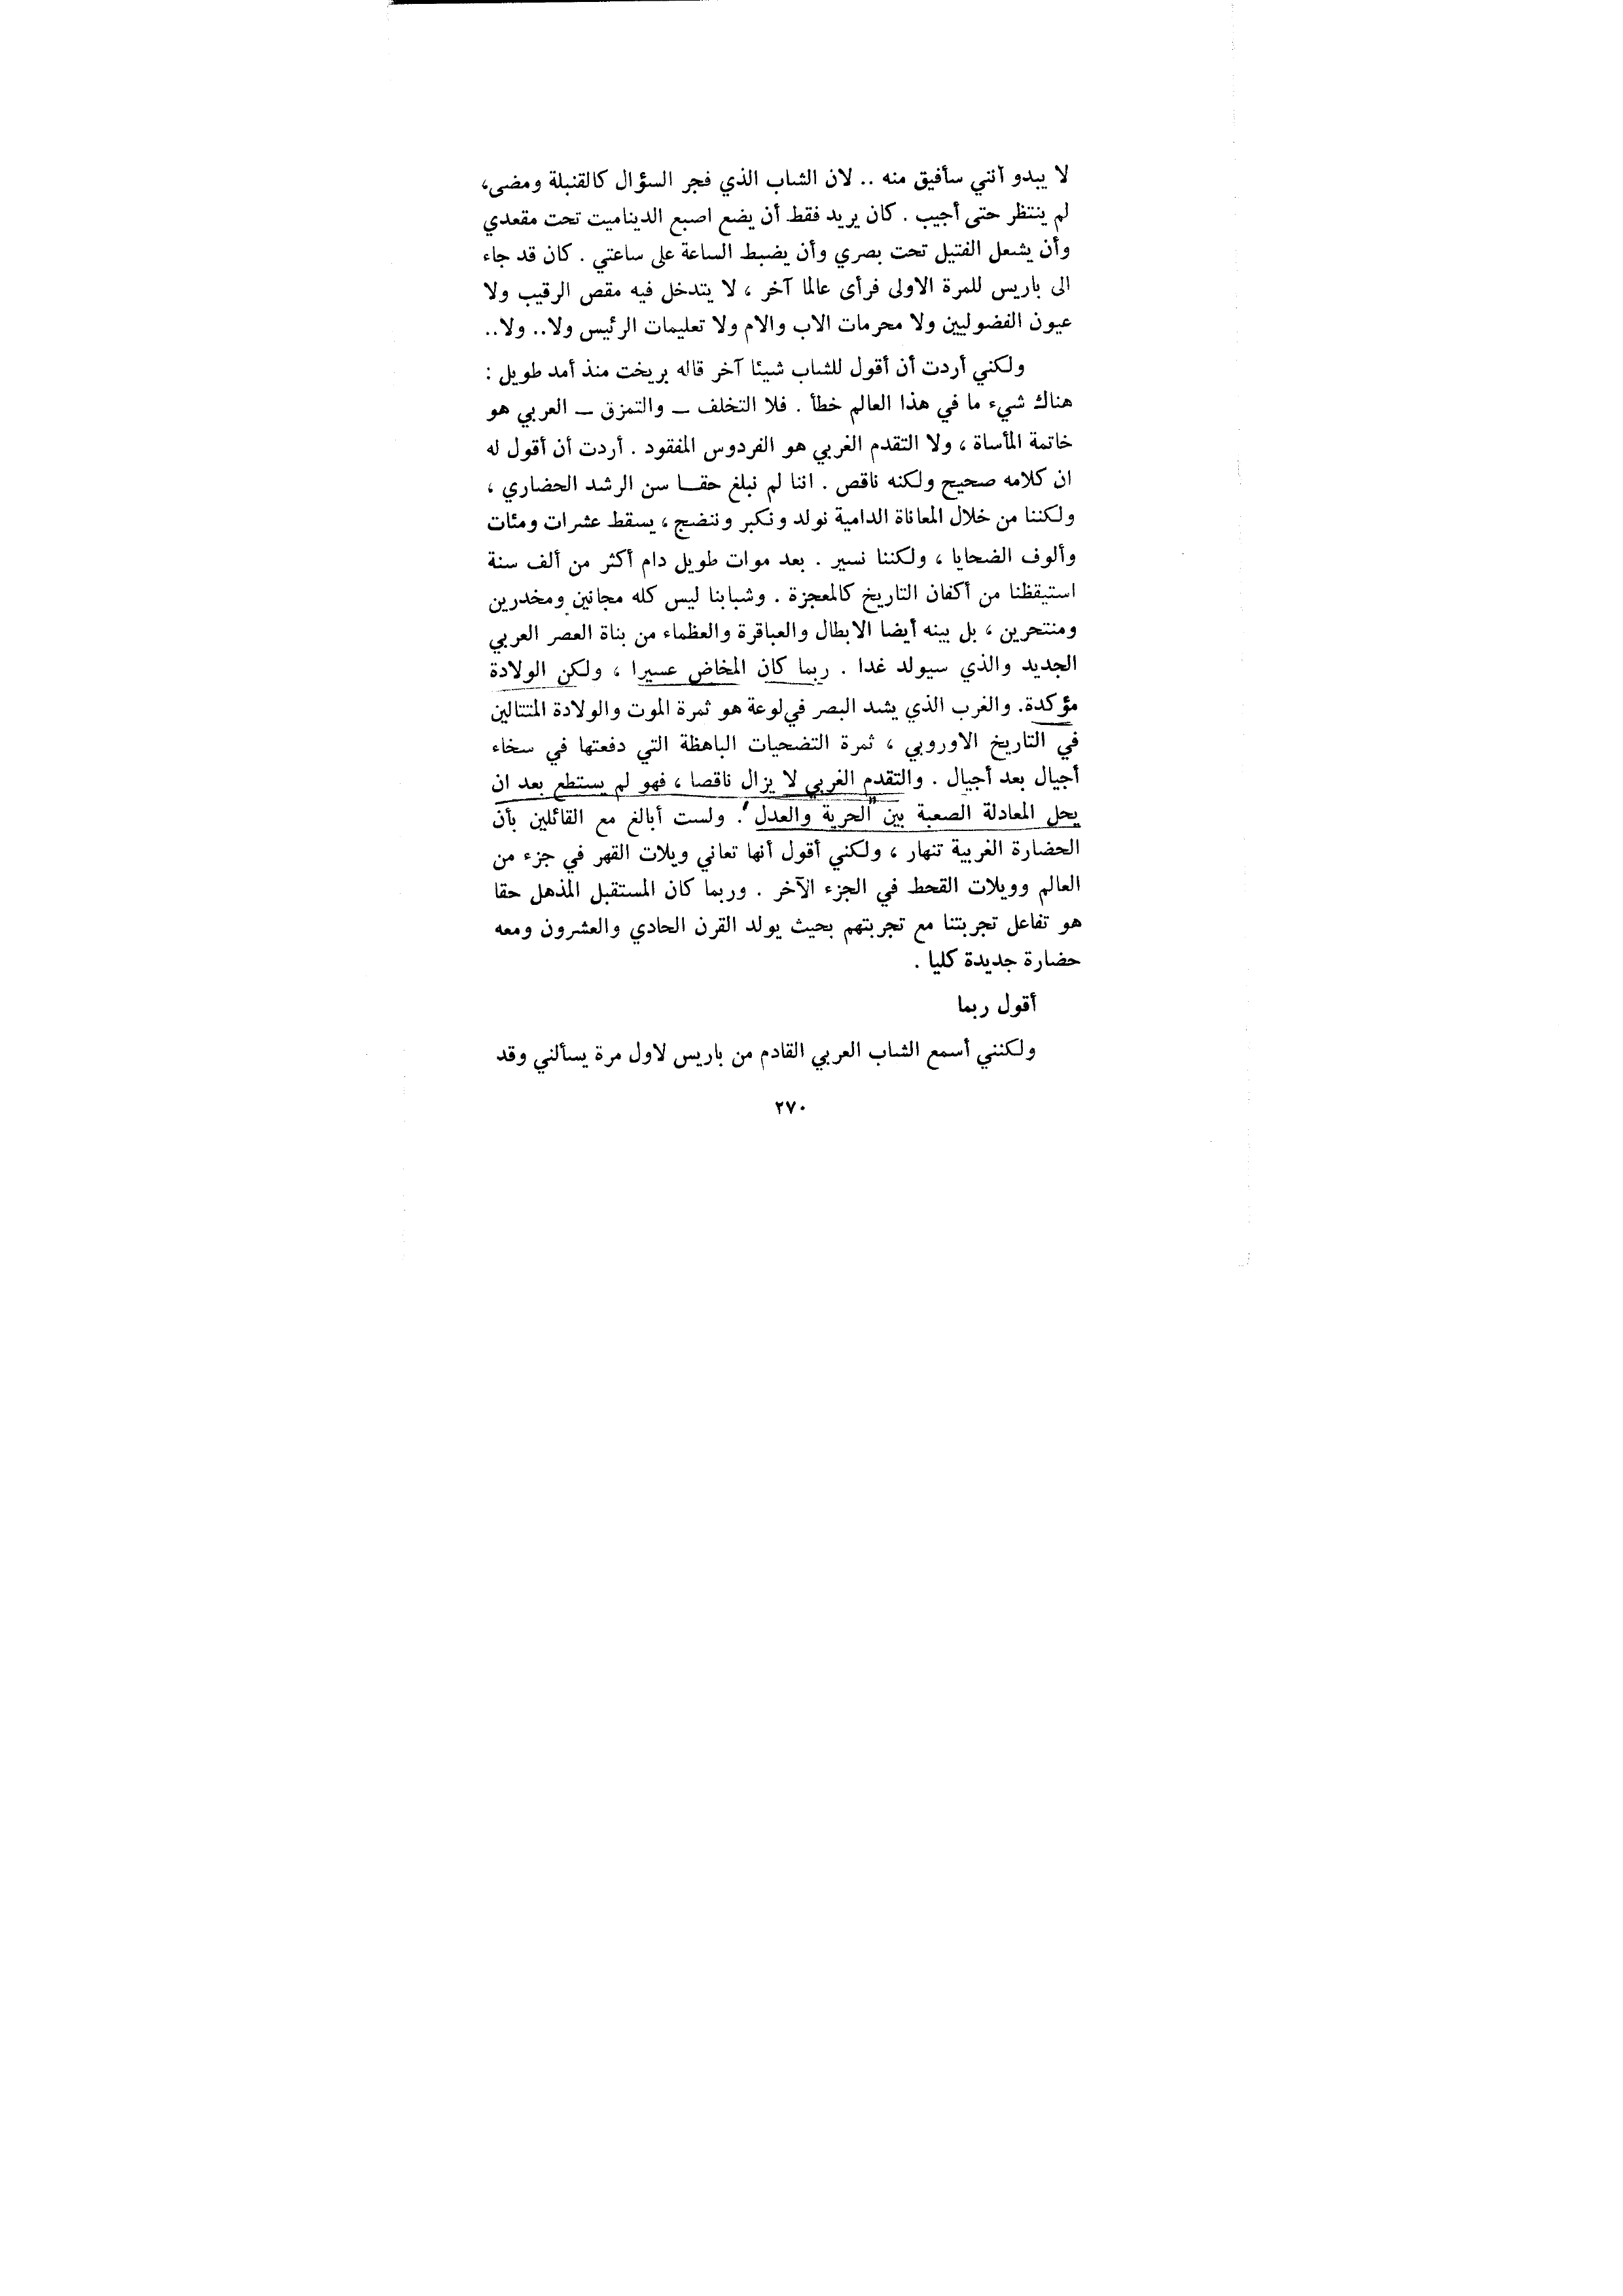 لا يبدو أنني سأفيق منه .. لان الشاب الذي فجر السؤال كالقنبلة ومضى،
لم ينتظر حتى أجيب . كان يريد فقط أن يضع اصبع الديناميت تحت مقعدي
وأن يشعل الفتيل تحت بصري وأن يضبط الساعة على ساعتي . كان قد جاء
الى باريس للمرة الاولى فرأى عالما آخر ، لا يتدخل فيه مقص الرقيب ولا
عيون الفضوليين ولا محرمات الاب والام ولا تعليمات الرئيس ولا.. ولا..
ولكني أردت أن أقول للشاب شيئا آخر قاله بريخت منذ أمد طويل :
هناك شيء ما في هذا العالم خطأ . فلا التخلف ــ والتمزق ــ العربي هو
خاتمة المأساة ، ولا التقدم الغربي هو الفردوس المفقود . أردت أن أقول له
ان كلامه صحيح ولكنه ناقص . اننا لم نبلغ حقــا سن الرشد الحضاري ،
ولكننا من خلال المعاناة الدامية نولد ونكبر وننضج ، يسقط عشرات ومئات
وألوف الضحايا ، ولكننا نسير . بعد موات طويل دام أكثر من ألف سنة
استيقظنا من أكفان التاريخ كالمعجزة . وشبابنا ليس كله مجانين ومخدرين
ومنتحرين ، بل بينه أيضا الابطال والعباقرة والعظماء من بناة العصر العربي
الجديد والذي سيولد غدا . ربما كان المخاض عسيرا ، ولكن الولادة
مؤكدة. والغرب الذي يشد البصر في لوعة هو ثمرة الموت والولادة المتتالين
في التاريخ الاوروبي ، ثمرة التضحيات الباهظة التي دفعتها في سخاء
أجيال بعد أجيال . والتقدم الغربي لا يزال ناقصا ، فهو لم يستطع بعد ان
يحل المعادلة الصعبة بين "الحرية والعدل" . ولست أبالغ مع القائلين بأن
الحضارة الغربية تنهار ، ولكني أقول أنها تعاني ويلات القهر في جزء من
العالم وويلات القحط في الجزء الآخر . وربما كان المستقبل المذهل حقا
هو تفاعل تجربتنا مع تجربتهم بحيث يولد القرن الحادي والعشرون ومعه
حضارة جديدة كليا .
أقول ربما
ولكنني أسمع الشاب العربي القادم من باريس لاول مرة يسألني وقد
٢٧٠